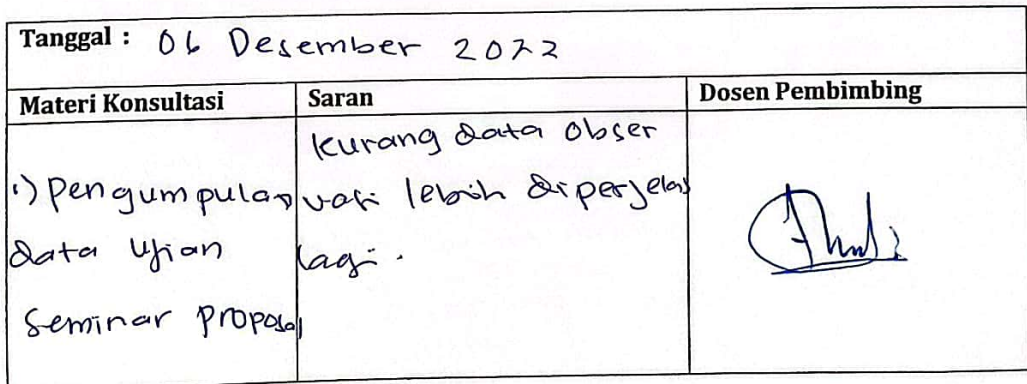 Tanggal : 06 Desember 2022
Materi Konsultasi Saran Dosen Pembimbing
1) Pengumpulan data Ujian Seminar Proposal
Kurang data Obser
vasi lebih diperjelas
lagi.